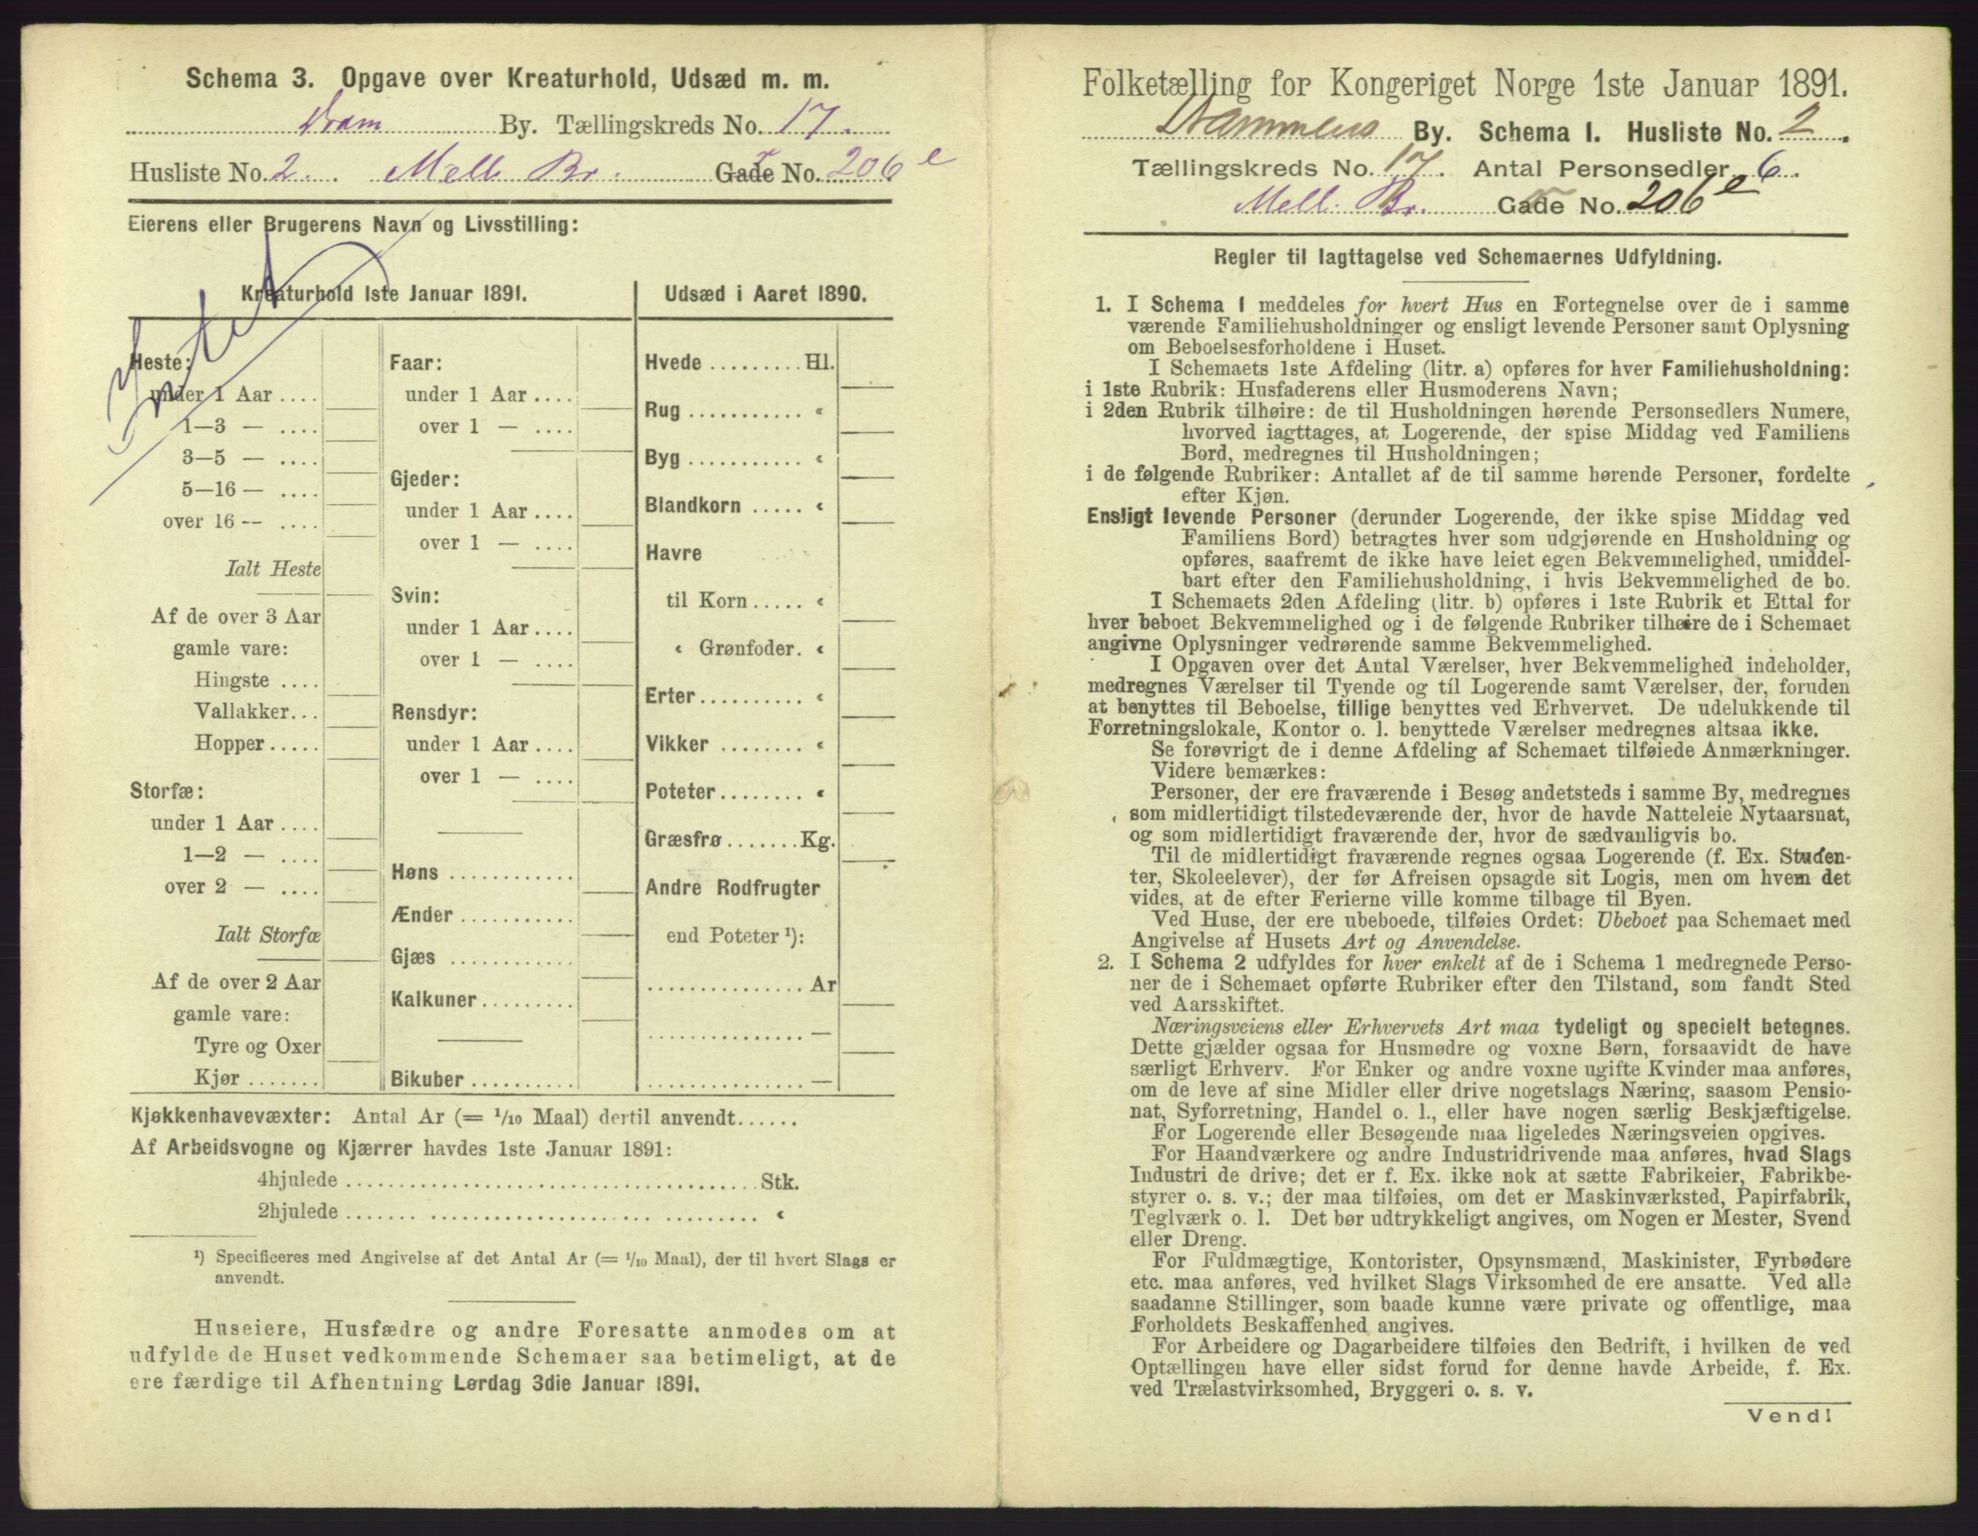 Schema 3. Opgave over Kreaturhold, Udsæd m. m.
Dram By. Tællingskreds No. 17.
Husliste No. 2. Mell. Br. Gade No. 206 e
Eierens eller Brugerens Navn og Livsstilling:
Intet
Kreaturhold 1ste Januar 1891.
Heste:
under 1 Aar ....
1—3 — ....
3—5 — ....
5—16 — ....
over 16 — ....
Ialt Heste
Af de over 3 Aar
gamle vare:
Hingste ....
Vallakker...
Hopper.....
Storfæ:
under 1 Aar ....
1—2 — ....
over 2 — ....
Ialt Storfæ
Af de over 2 Aar
gamle vare:
Tyre og Oxer
Kjør .......
Faar:
under 1 Aar ....
over 1 — ....
Gjeder:
under 1 Aar ....
over 1 — ....
Svin:
under 1 Aar ....
over 1 — ....
Rensdyr:
under 1 Aar ....
over 1 — ....
Høns ............
Ænder ...........
Gjæs ............
Kalkuner.........
Bikuber ..........
Udsæd i Aaret 1890.
Hvede ......... Hl.
Rug ........... «
Byg ........... «
Blandkorn ..... «
Havre
til Korn ..... «
« Grønfoder. «
Erter ......... «
Vikker ........ «
Poteter ........ «
Græsfrø ....... Kg.
Andre Rodfrugter
end Poteter ¹):
............... Ar
............... —
............... —
Kjøkkenhavevæxter: Antal Ar (= 1/10 Maal) dertil anvendt......
Af Arbeidsvogne og Kjærrer havdes 1ste Januar 1891:
4hjulede ....................................... Stk.
2hjulede ....................................... «
¹) Specificeres med Angivelse af det Antal Ar (= 1/10 Maal), der til hvert Slags er
anvendt.
Huseiere, Husfædre og andre Foresatte anmodes om at
udfylde de Huset vedkommende Schemaer saa betimeligt, at de
ere færdige til Afhentning Lørdag 3die Januar 1891.
Folketælling for Kongeriget Norge 1ste Januar 1891.
Drammens By. Schema I. Husliste No. 2.
Tællingskreds No. 17. Antal Personsedler 6.
Mell. Br. Gade No. 206 e
Regler til Iagttagelse ved Schemaernes Udfyldning.
1. I Schema 1 meddeles for hvert Hus en Fortegnelse over de i samme
værende Familiehusholdninger og ensligt levende Personer samt Oplysning
om Beboelsesforholdene i Huset.
I Schemaets 1ste Afdeling (litr. a) opføres for hver Familiehusholdning:
i 1ste Rubrik: Husfaderens eller Husmoderens Navn;
i 2den Rubrik tilhøire: de til Husholdningen hørende Personsedlers Numere,
hvorved iagttages, at Logerende, der spise Middag ved Familiens
Bord, medregnes til Husholdningen;
i de følgende Rubriker: Antallet af de til samme hørende Personer, fordelte
efter Kjøn.
Ensligt levende Personer (derunder Logerende, der ikke spise Middag ved
Familiens Bord) betragtes hver som udgjørende en Husholdning og
opføres, saafremt de ikke have leiet egen Bekvemmelighed, umiddel-
bart efter den Familiehusholdning, i hvis Bekvemmelighed de bo.
I Schemaets 2den Afdeling (litr. b) opføres i 1ste Rubrik et Ettal for
hver beboet Bekvemmelighed og i de følgende Rubriker tilhøire de i Schemaet
angivne Oplysninger vedrørende samme Bekvemmelighed.
I Opgaven over det Antal Værelser, hver Bekvemmelighed indeholder,
medregnes Værelser til Tyende og til Logerende samt Værelser, der, foruden
at benyttes til Beboelse, tillige benyttes ved Erhvervet. De udelukkende til
Forretningslokale, Kontor o. l. benyttede Værelser medregnes altsaa ikke.
Se forøvrigt de i denne Afdeling af Schemaet tilføiede Anmærkninger.
Videre bemærkes:
Personer, der ere fraværende i Besøg andetsteds i samme By, medregnes
som midlertidigt tilstedeværende der, hvor de havde Natteleie Nytaarsnat,
og som midlertidigt fraværende der, hvor de sædvanligvis bo.
Til de midlertidigt fraværende regnes ogsaa Logerende (f. Ex. Studen-
ter, Skoleelever), der før Afreisen opsagde sit Logis, men om hvem det
vides, at de efter Ferierne ville komme tilbage til Byen.
Ved Huse, der ere ubeboede, tilføies Ordet: Ubeboet paa Schemaet med
Angivelse af Husets Art og Anvendelse.
2. I Schema 2 udfyldes for hver enkelt af de i Schema 1 medregnede Perso-
ner de i Schemaet opførte Rubriker efter den Tilstand, som fandt Sted
ved Aarsskiftet.
Næringsveiens eller Erhvervets Art maa tydeligt og specielt betegnes.
Dette gjælder ogsaa for Husmødre og voxne Børn, forsaavidt de have
særligt Erhverv. For Enker og andre voxne ugifte Kvinder maa anføres,
om de leve af sine Midler eller drive nogetslags Næring, saasom Pensio-
nat, Syforretning, Handel o. l., eller have nogen særlig Beskjæftigelse.
For Logerende eller Besøgende maa ligeledes Næringsveien opgives.
For Haandværkere og andre Industridrivende maa anføres, hvad Slags
Industri de drive; det er f. Ex. ikke nok at sætte Fabrikeier, Fabrikbe-
styrer o. s. v.; der maa tilføies, om det er Maskinværksted, Papirfabrik,
Teglværk o. l. Det bør udtrykkeligt angives, om Nogen er Mester, Svend
eller Dreng.
For Fuldmægtige, Kontorister, Opsynsmænd, Maskinister, Fyrbødere
etc. maa anføres, ved hvilket Slags Virksomhed de ere ansatte. Ved alle
saadanne Stillinger, som baade kunne være private og offentlige, maa
Forholdets Beskaffenhed angives.
For Arbeidere og Dagarbeidere tilføies den Bedrift, i hvilken de ved
Optællingen have eller sidst forud for denne havde Arbeide, f. Ex.
ved Trælastvirksomhed, Bryggeri o. s. v.
Vend!